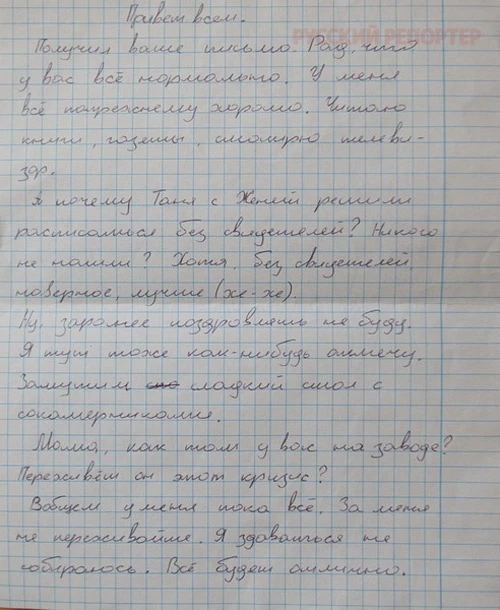 Привет всем.
РУССКИЙ РЕПОРТЕР
Получил ваше письмо. Рад, что
у вас всё нормально. У меня
всё попрежнему хорошо. Читаю
книги, газеты, смотрю телеви-
зор.
А почему Таня с Женей решили
расписаться без свидетелей? Никого
не нашли? Хотя, без свидетелей,
наверное, лучше (хе-хе).
Ну, заранее поздравлять не буду.
Я тут тоже как-нибудь отмечу.
Замутим сладкий стол с
сокамерниками.
Мама, как там у вас на заводе?
Переживём он этот кризис?
Вобщем у меня пока всё. За меня
не переживайте. Я здаваться не
собираюсь. Всё будет отлично.